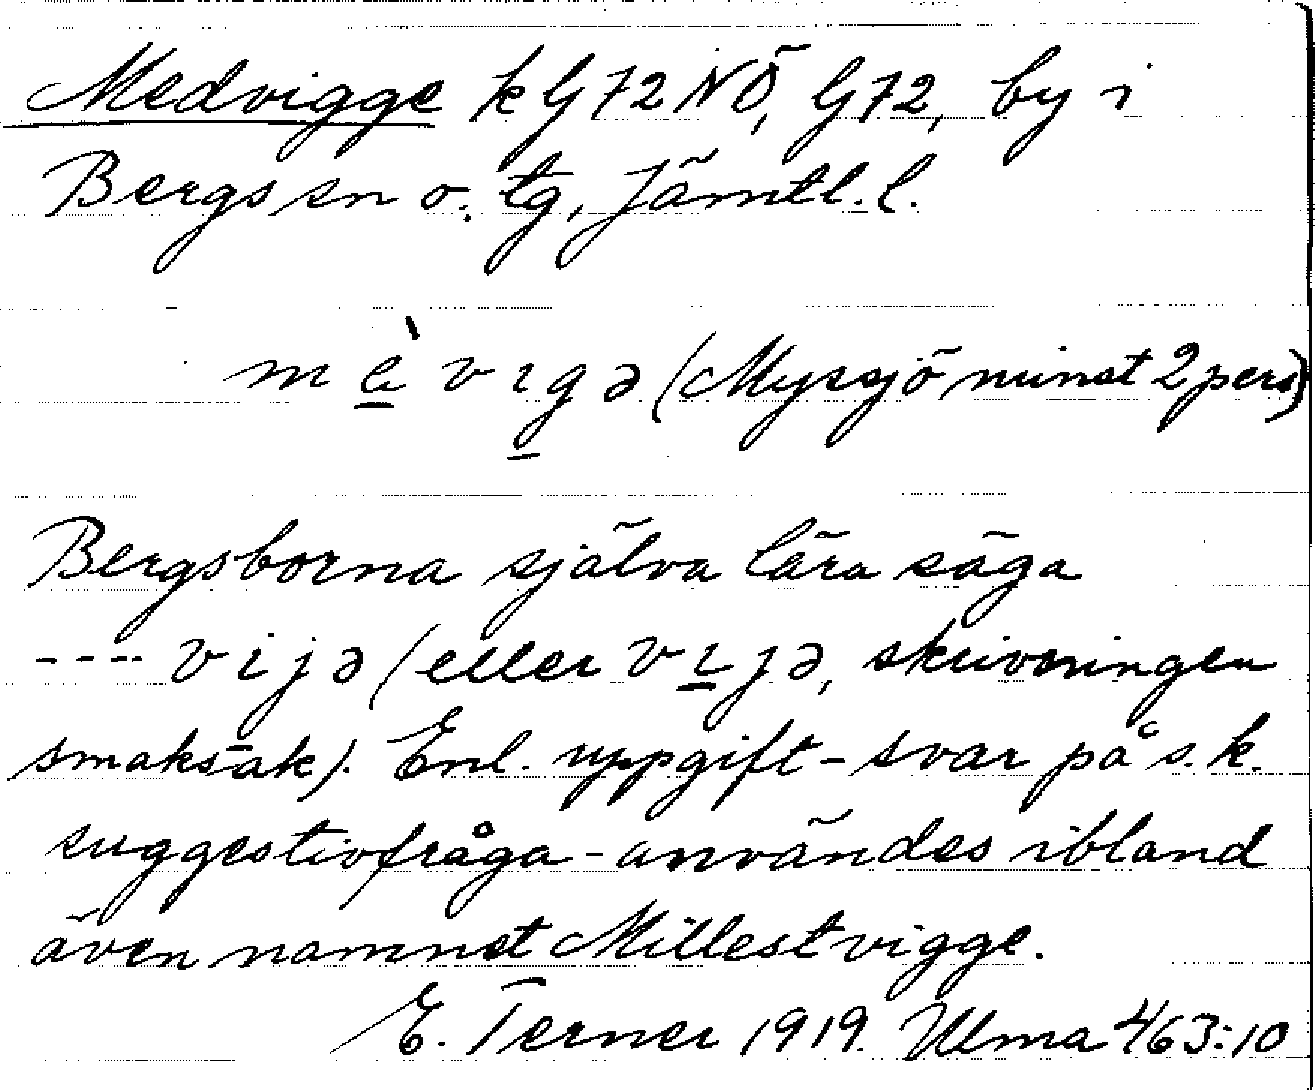 Medvigge k G 72 NÖ, G 72, by i
Bergs sn o. tg, Jämtl. l.
mè̱ vıg̱ə (Myssjö minst 2 pers)
Bergsborna själva lära säga
---- vijə (eller vı̱jə, skrivningen
smaksak). Enl. uppgift - svar på s. k.
suggestivfråga - användes ibland
även namnet Millestvigge.
E. Terner 1919. Ulma 463:10